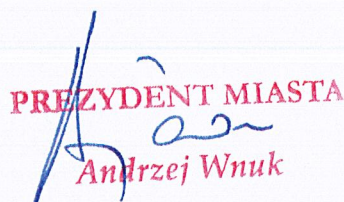 PREZYDENT MIASTA
Andrzej Wnuk